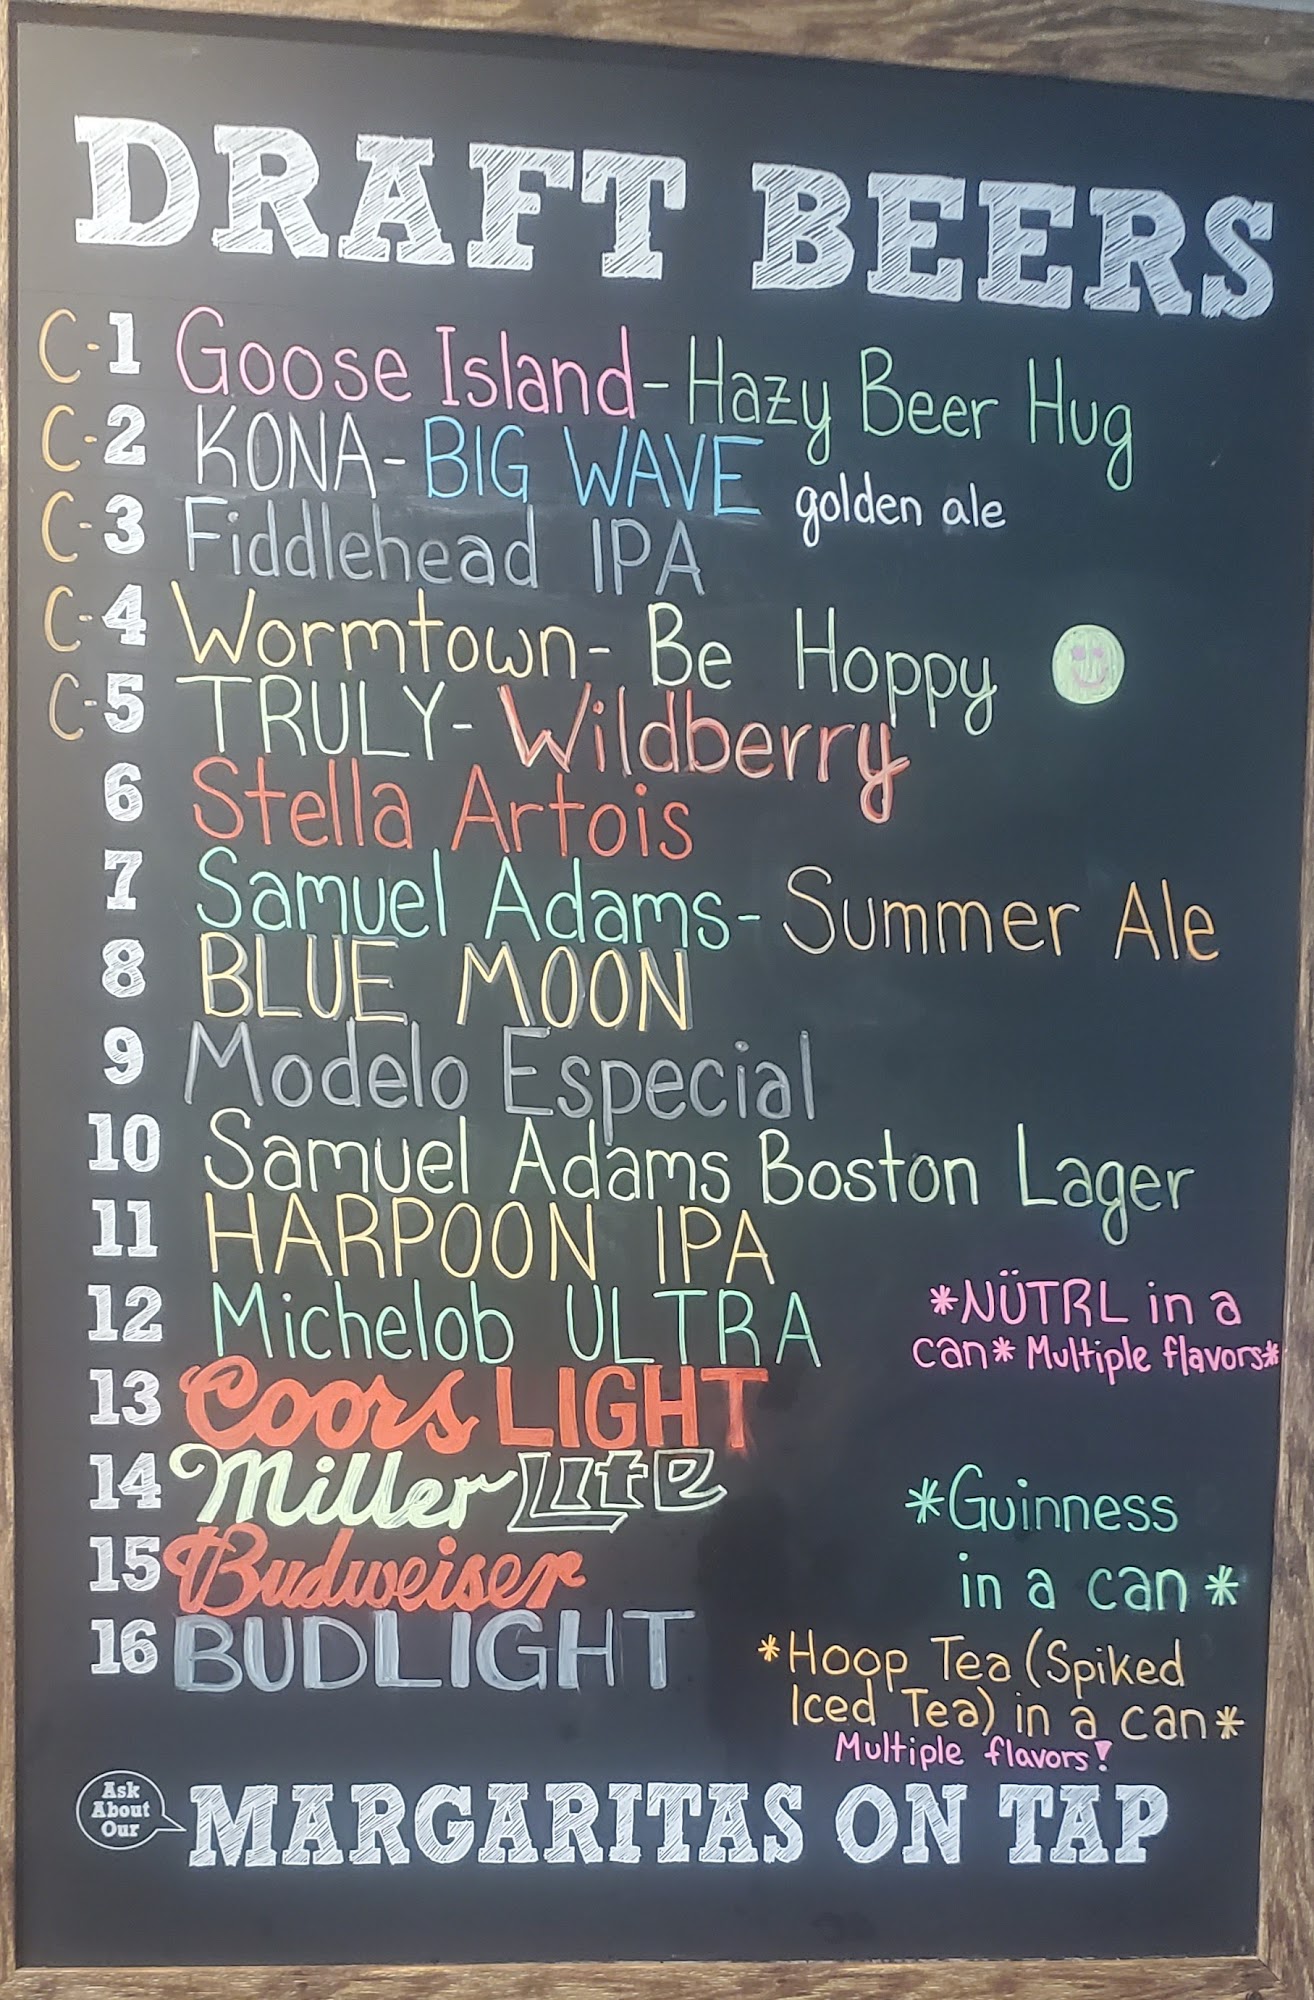 DRAFT BEERS
C-1 Goose Island-Hazy Beer Hug
C-2 KONA-BIG WAVE golden ale
C-3 Fiddlehead IPA
C-4 Wormtown- Be Hoppy
C-5 TRULY- Wildberry
6 Stella Artois
7 Samuel Adams- Summer Ale
8 BLUE MOON
9 Modelo Especial
10 Samuel Adams Boston Lager
11 HARPOON IPA
12 Michelob ULTRA
13 Coors LIGHT
14 Miller Lite
15 Budweiser
16 BUDLIGHT
*NÜTRL in a
can* Multiple flavors*
*Guinness
in a can *
*Hoop Tea (Spiked
Iced Tea) in a can*
Multiple flavors!
Ask
About
Our
MARGARITAS ON TAP